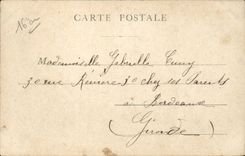 CARTE POSTALE
Mademoiselle Gabrielle Cuny
3e rue Rivière 3e chez ses Parents
à Bordeaux
(Gironde)